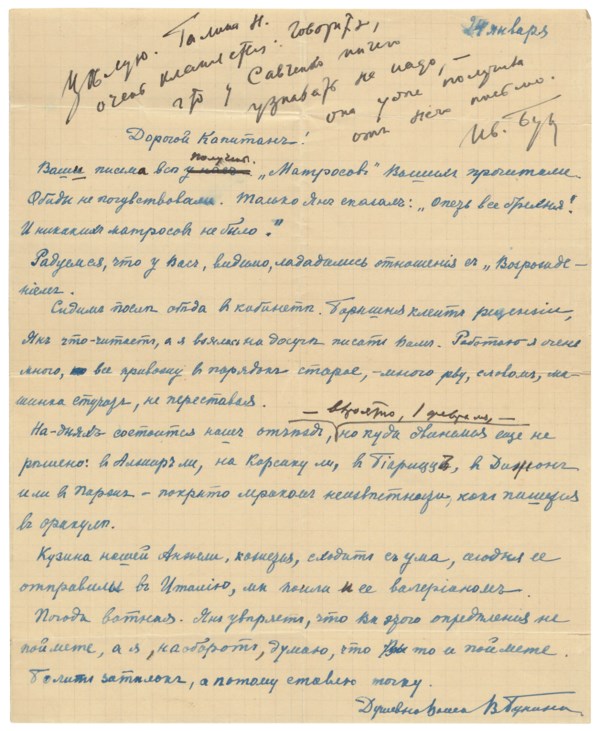 24 января
Цѣлую. Галина Н.
очень кланяется. Говоритъ,
что у Савченко ничего
узнавать не надо, —
она уже получила
отъ него письмо.
Ив. Бун
Дорогой Капитанъ!
Ваши письма всѣ получены. „Матросовъ" Вашихъ прочитали.
Обиды не почувствовали. Только Янъ сказалъ: „Опять все
И никакихъ матросовъ не было."
Радуемся, что у Васъ, видимо, наладились отношенія съ „Возрожде-
ніемъ.
Сидимъ послѣ обѣда в кабинетѣ. Барышня клеитъ рецензіи,
Янъ что-читаетъ, а я взялась на досугѣ писать Вамъ. Работаю я очень
много, все привожу в порядокъ старое, -много рву, словомъ, ма-
шинка стучатъ, не переставая.
— вѣроятно, 1 февраля, —
На-дняхъ состоится нашъ отъѣздъ, но куда двинемся еще не
рѣшено: в Алжиръ ли, на Корсику ли, в Біаррицъ, в Дижонъ
или в Парижъ - покрыто мракомъ неизвѣстности, какъ пишется
въ оракулѣ.
Кузина нашей Анжели, кажется, сходитъ съ ума, сегодня ее
отправили въ Италію, мы поили и ее валеріаномъ.
Погода ватная. Янъ увѣряетъ, что Вы этого опредѣленія не
поймете, а я, наоборотъ, думаю, что Вы то и поймете.
Болитъ затылокъ, а потому ставлю точку.
Душевно Ваша В Бунина